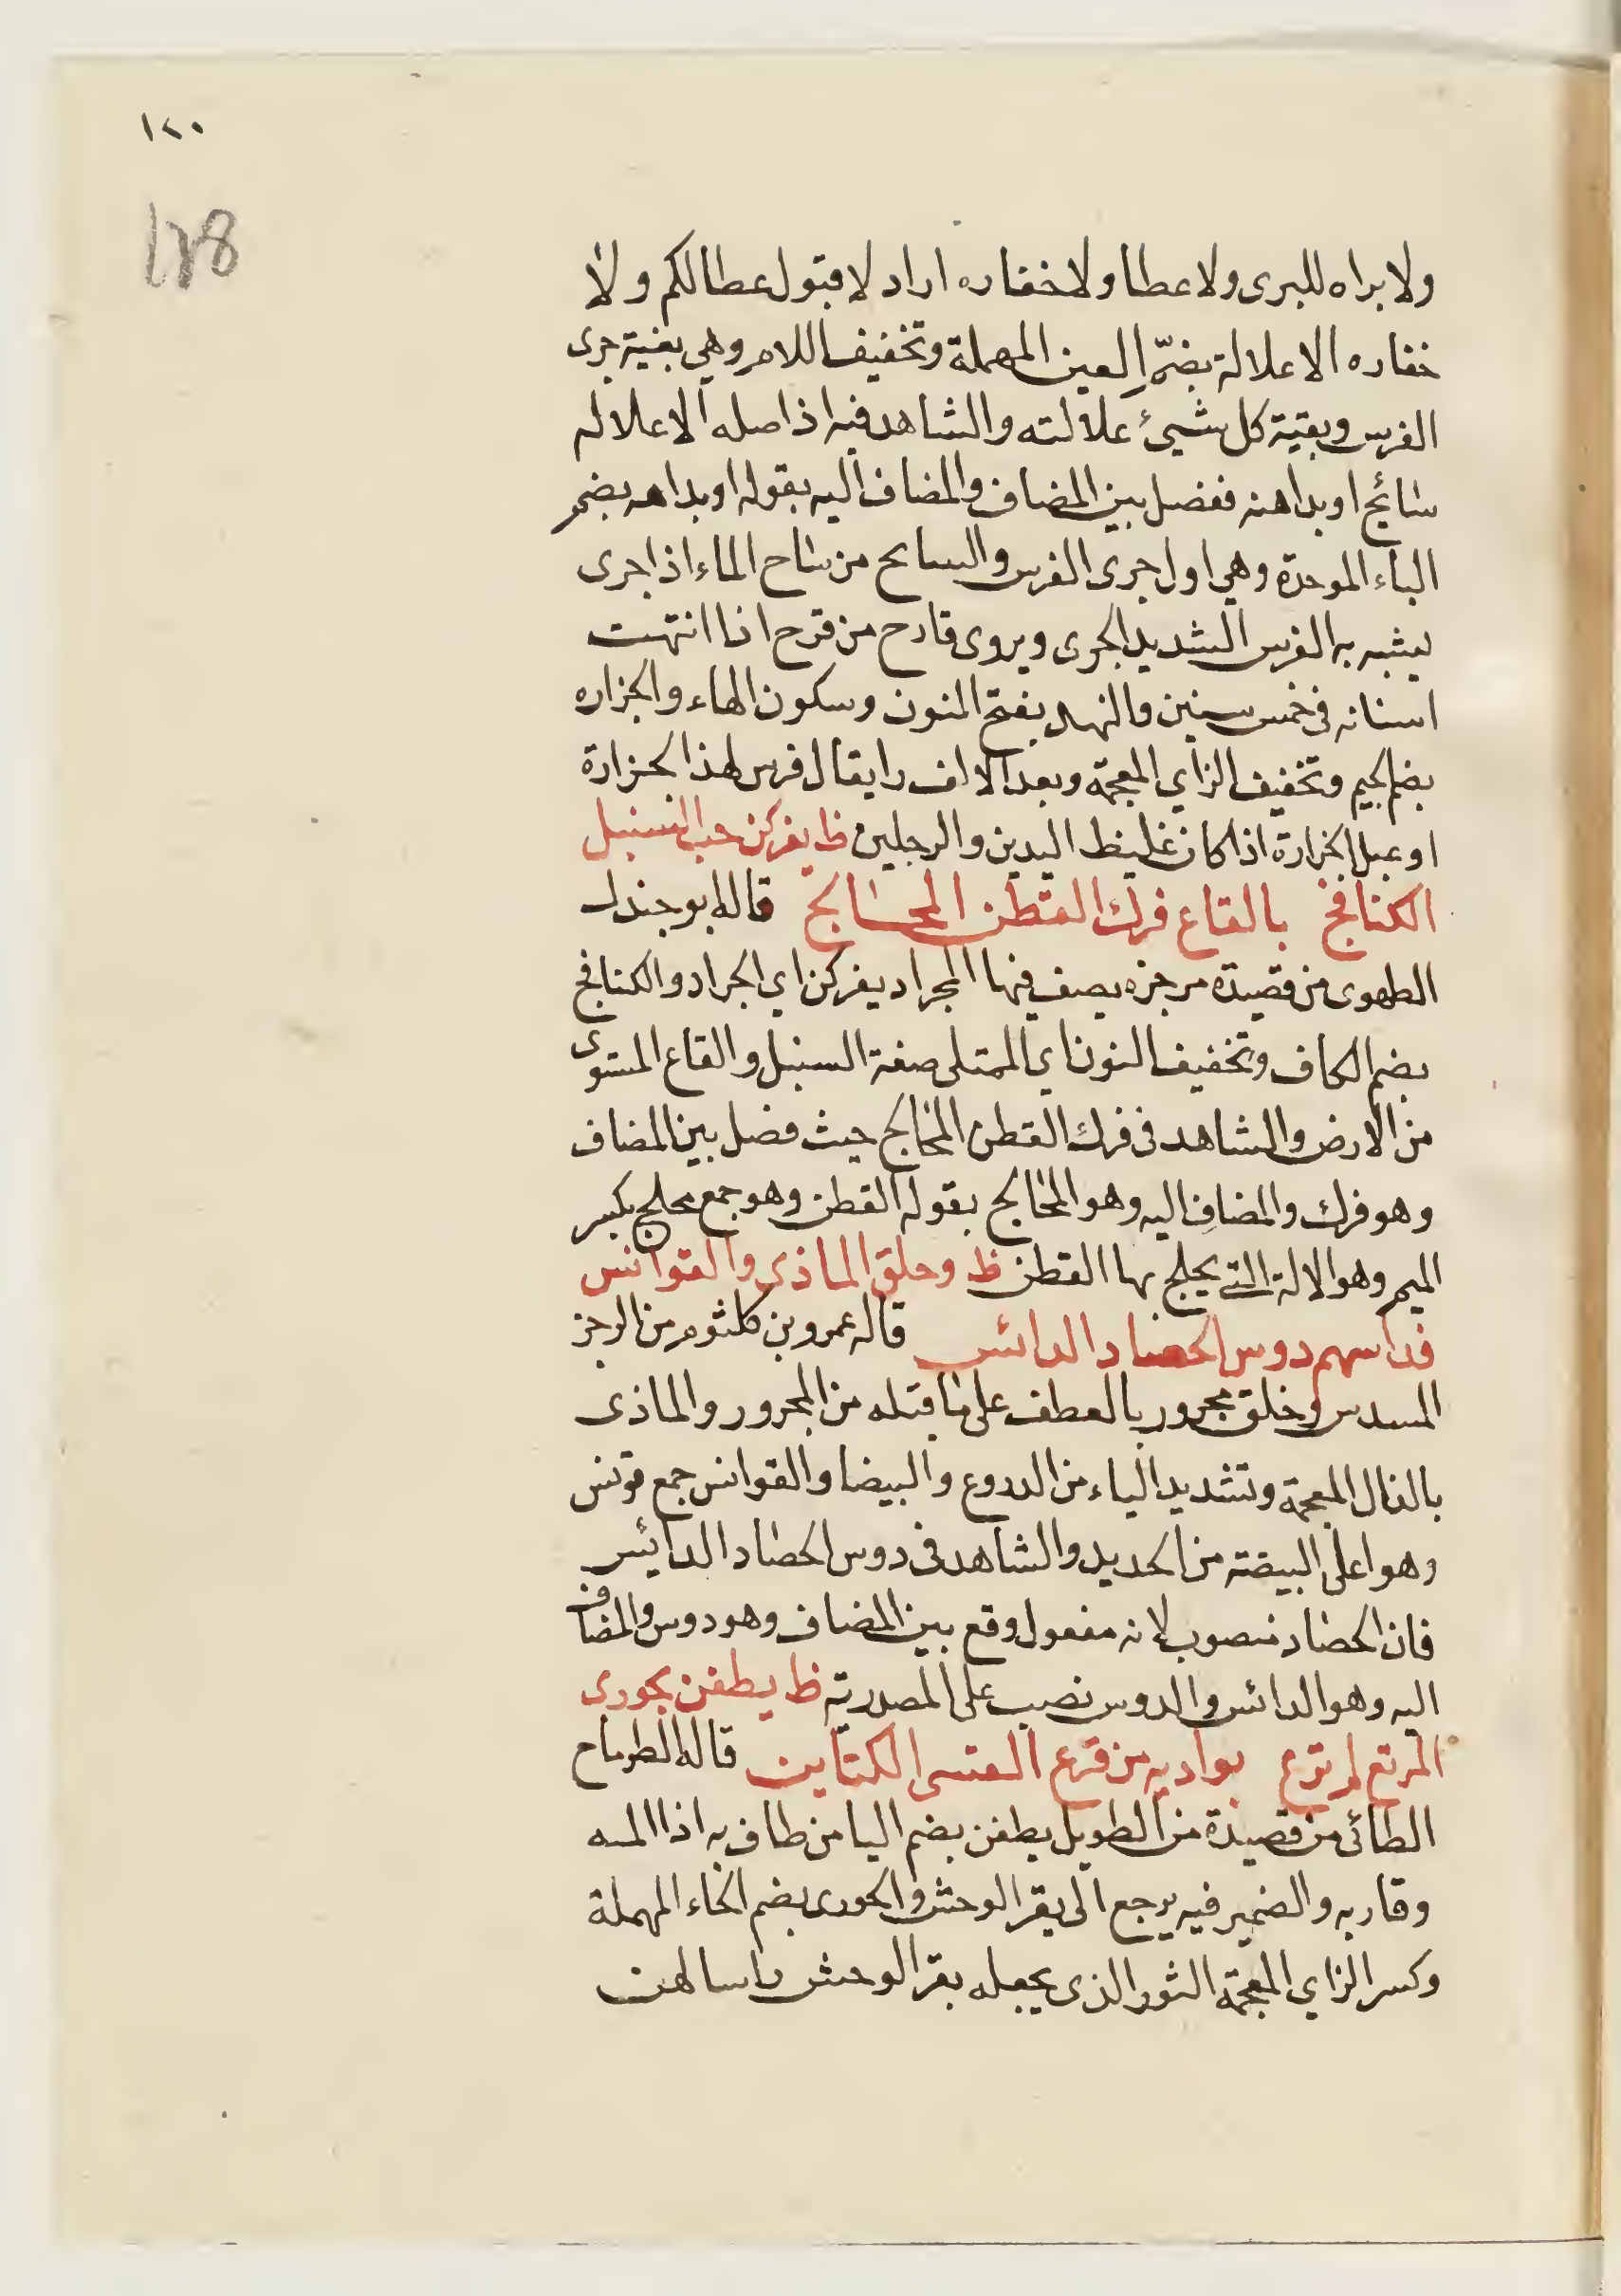 ١٢٠
128
ولا براه للبرى ولا عطا ولا خفاره اراد لا قبول عطالكم ولا
خفاره الا علالة بضمّ العين المهملة وتخفيف اللام وهي بقية جرى
الفرس وبقية كل شيئ علالته والشاهد فيه اذ اصله الا علاله
سائج او بداهته ففصل بين المضاف والمضاف اليه بقوله او بداهه بضم
الباء الموحدة وهي اول جرى الفرس والسابح من ساح الماء اذا جرى
يشبه به الفرس الشديد الجرى ويروى قارح من قرح اذا انتهت
اسنانه فى خمس سنين والنهد بفتح النون وسكون الهاء والجزاره
بضم الجيم وتخفيف الزاي المعجمة وبعد الالف را يقال فرس لهذا الجزارة
او عبل الجزارة اذا كان غليظ اليدين والرجلين ظ يفركن حب السنبل
الكنافج بالقاع فرك القطن المحالج قاله ابو جندل
الطهوى من قصيدة مرجزه يصف فيها الجراد يفركن اي الجراد والكنافج
بضم الكاف وتخفيف النون اي الممتلى صفة السنبل والقاع المستوى
من الارض والشاهد فى فرك القطن المحالج حيث فصل بين المضاف
وهو فرك والمضاف اليه وهو المحالج بقوله القطن وهو جمع محلج بكسر
الميم وهو الالة التي يحلج بها القطن ظ وحلق الماذى والقوانس
فداسهم دوس الحصاد الدائس قاله عمرو بن كلثوم من الرجز
المسدس وحلق مجرور بالعطف على ما قبله من المجرور والماذى
بالذال المعجمة وتشديد الياء من الدروع والبيضا والقوانس جمع قونس
وهو اعلى البيضة من الحديد والشاهد فى دوس الحصاد الدائس
فان الحصاد منصوب لانه مفعول وقع بين المضاف وهو دوس والمضاف
اليه وهو الدائس والدوس نصب على المصدرية ظ يطفن بحوزى
المرتع لم ترع بواديه من قرع القسى الكنائن قاله الطرماح
الطائى من قصيدة من الطويل يطفن بضم اليا من طاف به اذا المه
وقاربه والضمير فيه يرجع الى بقر الوحش والحوزى بضم الحاء المهملة
وكسر الزاي المعجمة الثور الذى يجعله بقر الوحش راسا لهن